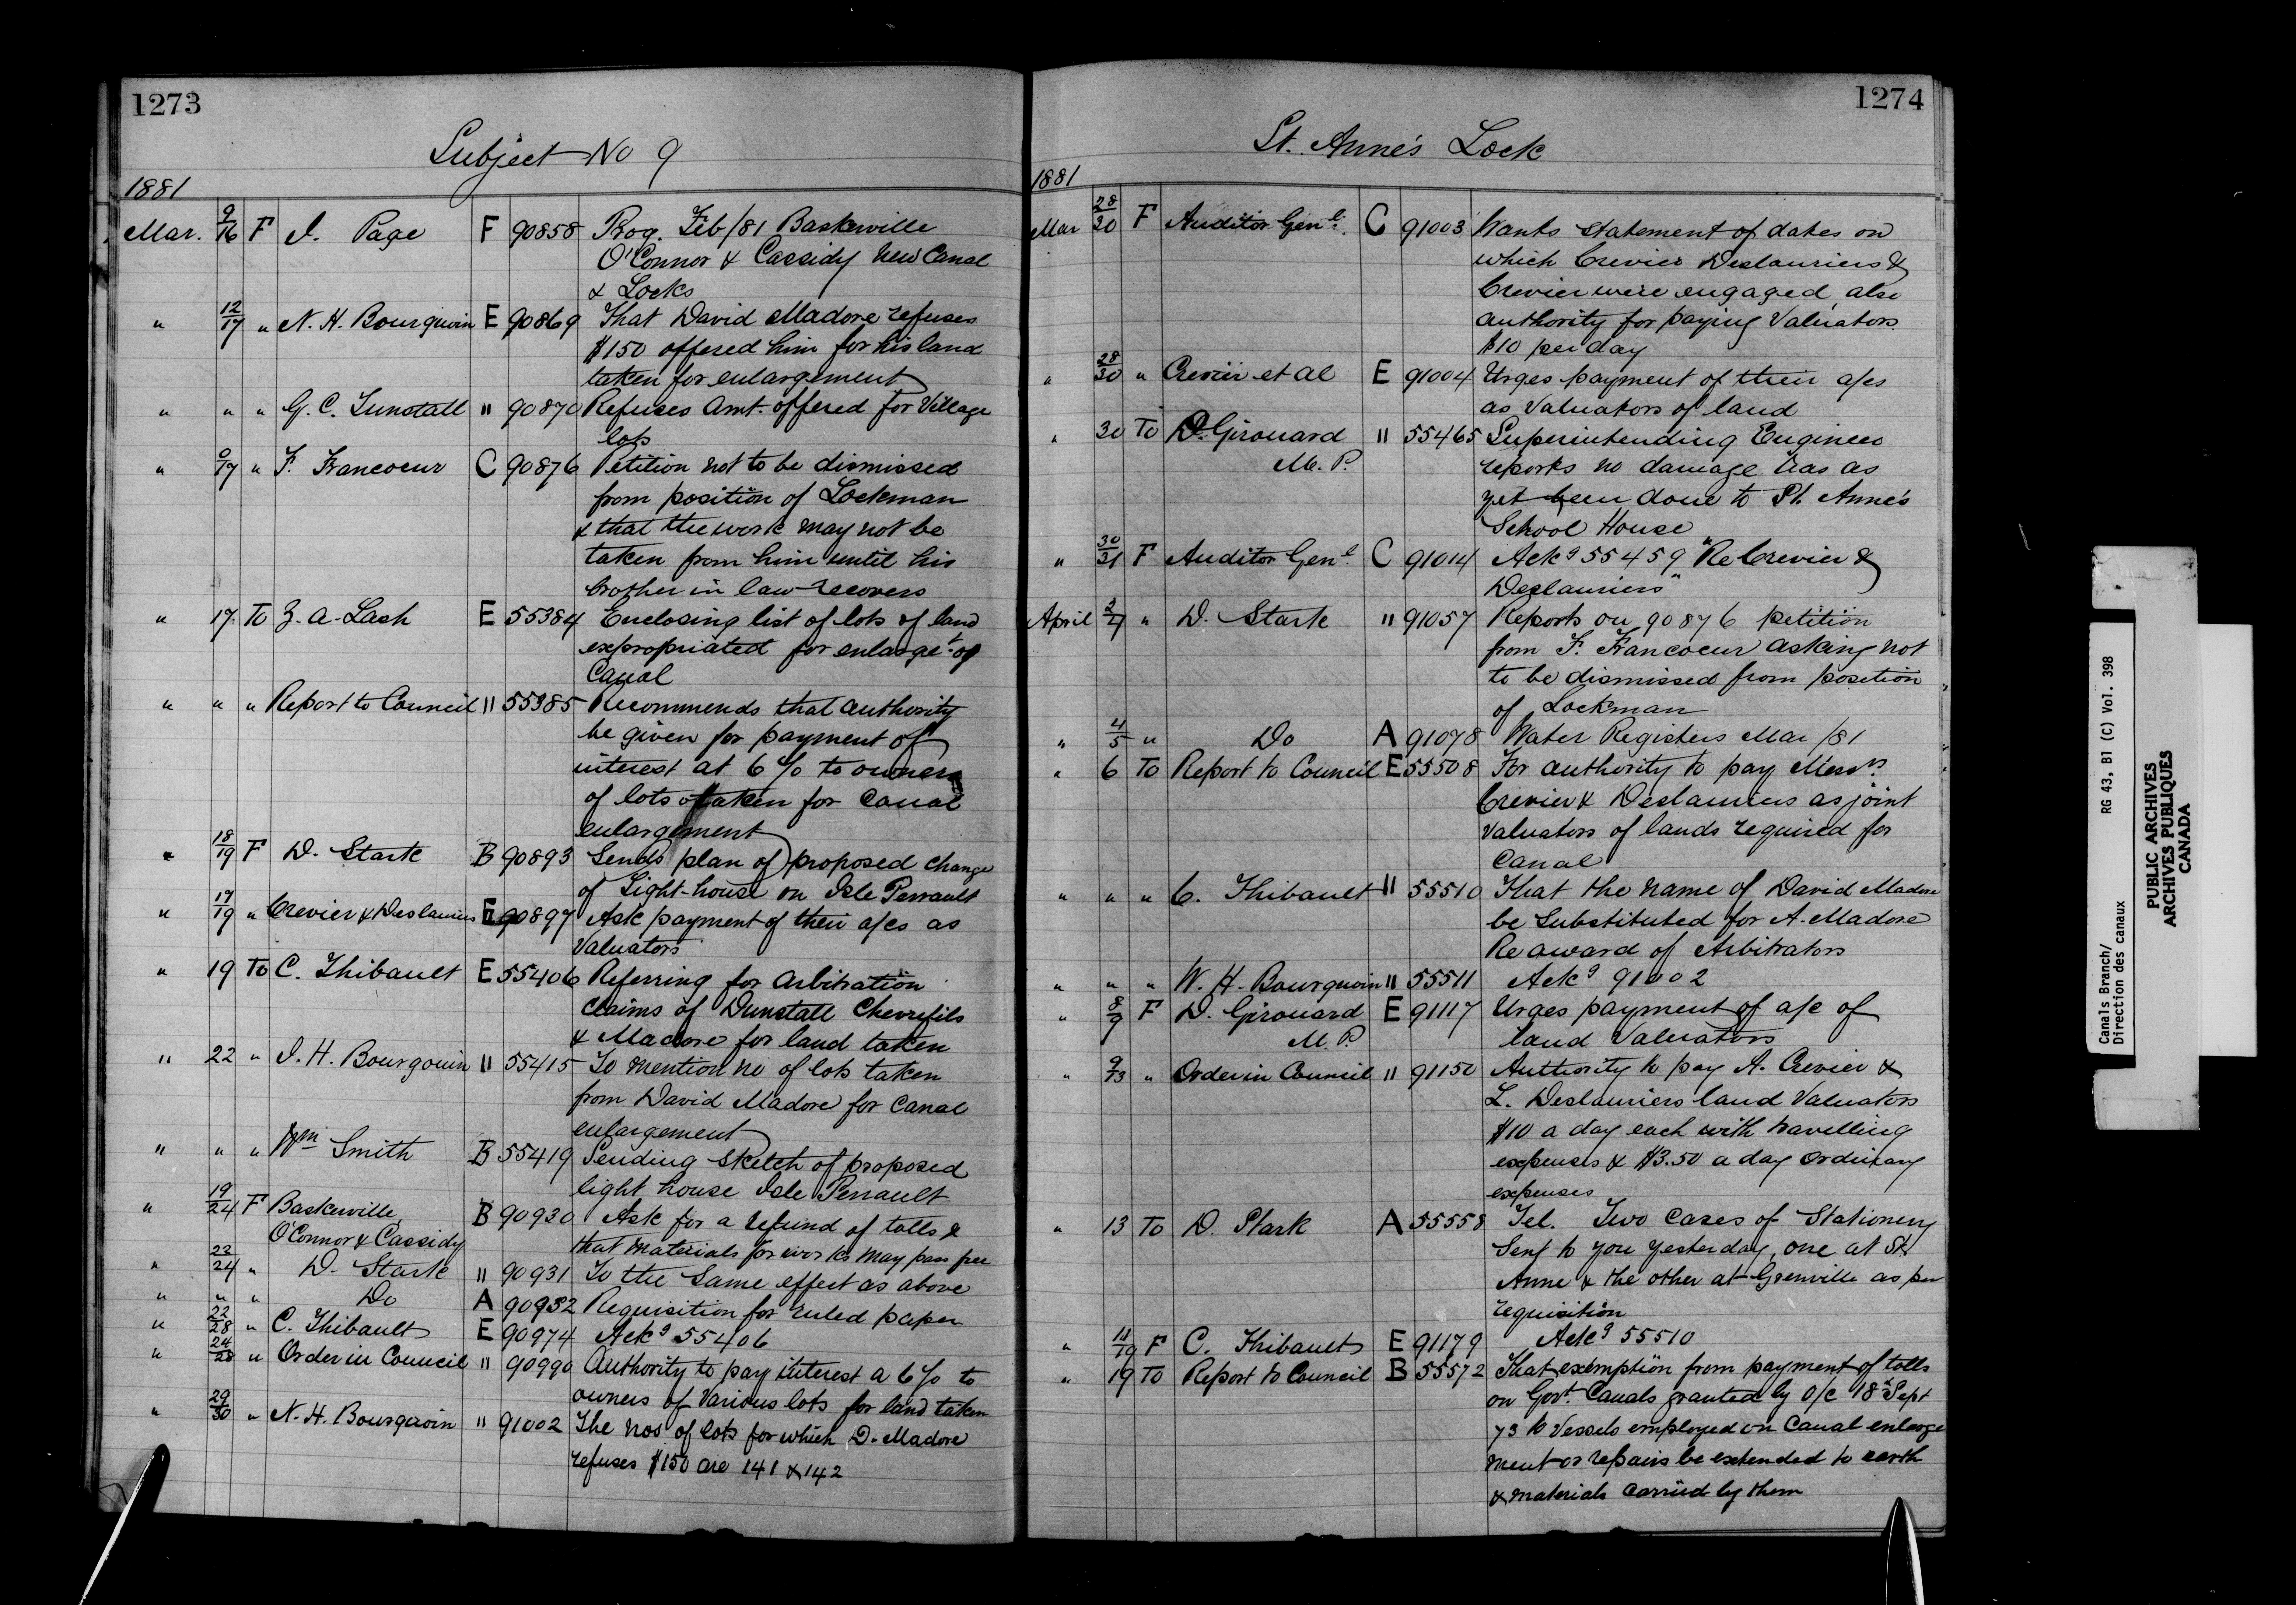 1273
Subject No 9
1881
Mar. 9/16 F J. Page F 90858 Prog. Feb/81 Baskerville
O'Connor & Cassidy New Canal
& Locks
" 12/17 " N. H. Bourgouin E 90869 That David Madore refuses
$150 offered him for his land
taken for enlargement
" " " G. C. Tunstall " 90870 Refuses Amt. offered for Village
lots
" 9/17 " F. Francoeur C 90876 Petition not to be dismissed
from position of Lockman
& that the work may not be
taken from him until his
brother in law recovers
" 17 To Z. A. Lash E 55384 Enclosing list of lots of land
expropriated for enlarget. of
Canal
" " " Report to Council " 55385 Recommends that authority
be given for payment of
interest at 6% to owners
of lots taken for Canal
enlargement
" 18/19 F D. Stark B 90893 Sends plan of proposed change
of Light-house on Isle Perrault
" 17/19 " Crevier & Deslauriers E 90897 Ask payment of their a/cs as
Valuators
" 19 To C. Thibault E 55406 Referring for Arbitration
Claims of Dunstall Chevrefils
& Madore for land taken
" 22 " J. H. Bourgouin " 55415 To mention no of lots taken
from David Madore for Canal
enlargement
" " " Wm Smith B 55419 Sending Sketch of proposed
light house Isle Perrault
" 19/24 F Baskerville B 90930 Ask for a refund of tolls &
O'Connor & Cassidy that Materials for works may pass free
" 23/24 " D. Stark " 90931 To the Same effect as above
" " " Do A 90932 Requisition for ruled paper
" 22/28 " C. Thibault E 90974 Ackg 55406
" 24/28 " Order in Council " 90990 Authority to pay interest a 6% to
owners of Various lots for land taken
" 29/30 " N. H. Bourgouin " 91002 The nos of lots for which D. Madore
refuses $150 are 141 & 142
1274
St. Anne's Lock
1881
Mar 28/30 F Auditor Genl. C 91003 Wants Statement of dates on
which Crevier Deslauriers &
Crevier were engaged, also
authority for paying Valuators
$10 per day
" 28/30 " Crevier et al E 91004 Urges payment of their a/cs
as Valuators of land
" 30 To D. Girouard " 55465 Superintending Engineer
M. P. reports no damage has as
yet been done to St. Anne's
School House
" 30/31 F Auditor Genl. C 91014 Ackg 55459 "Re Crevier &
Deslauriers"
April 2/4 " D. Stark " 91057 Reports on 90876 petition
from F. Francoeur asking not
to be dismissed from position
of Lockman
" 4/5 " Do A 91078 Water Registers Mar/81
" 6 To Report to Council E 55508 For authority to pay Messrs.
Crevier & Deslauriers as joint
Valuators of lands required for
Canal
" " " C. Thibault " 55510 That the name of David Madore
be Substituted for A. Madore
Re award of Arbitrators
" " " W. H. Bourgouin " 55511 Ackg 91002
" 8/9 F D. Girouard E 91117 Urges payment of a/c of
M. P. land Valuators
" 9/13 " Order in Council " 91150 Authority to pay A. Crevier &
L. Deslauriers land Valuators
$10 a day each with travelling
expenses & $3.50 a day ordinary
expenses
" 13 To D. Stark A 55558 Tel. Two Cases of Stationery
Sent to you yesterday, one at St.
Anne & the other at Grenville as per
requisition
" 11/19 F C. Thibault E 91179 Ackg 55510
" 19 To Report to Council B 55572 That exemption from payment of tolls
on Govt. Canals granted by O/C 18 Sept
73 to Vessels employed on Canal enlarge
ment or repairs be extended to earth
& materials carried by them
Canals Branch/ RG 43, B1 (C) Vol. 398
Direction des canaux
PUBLIC ARCHIVES
ARCHIVES PUBLIQUES
CANADA